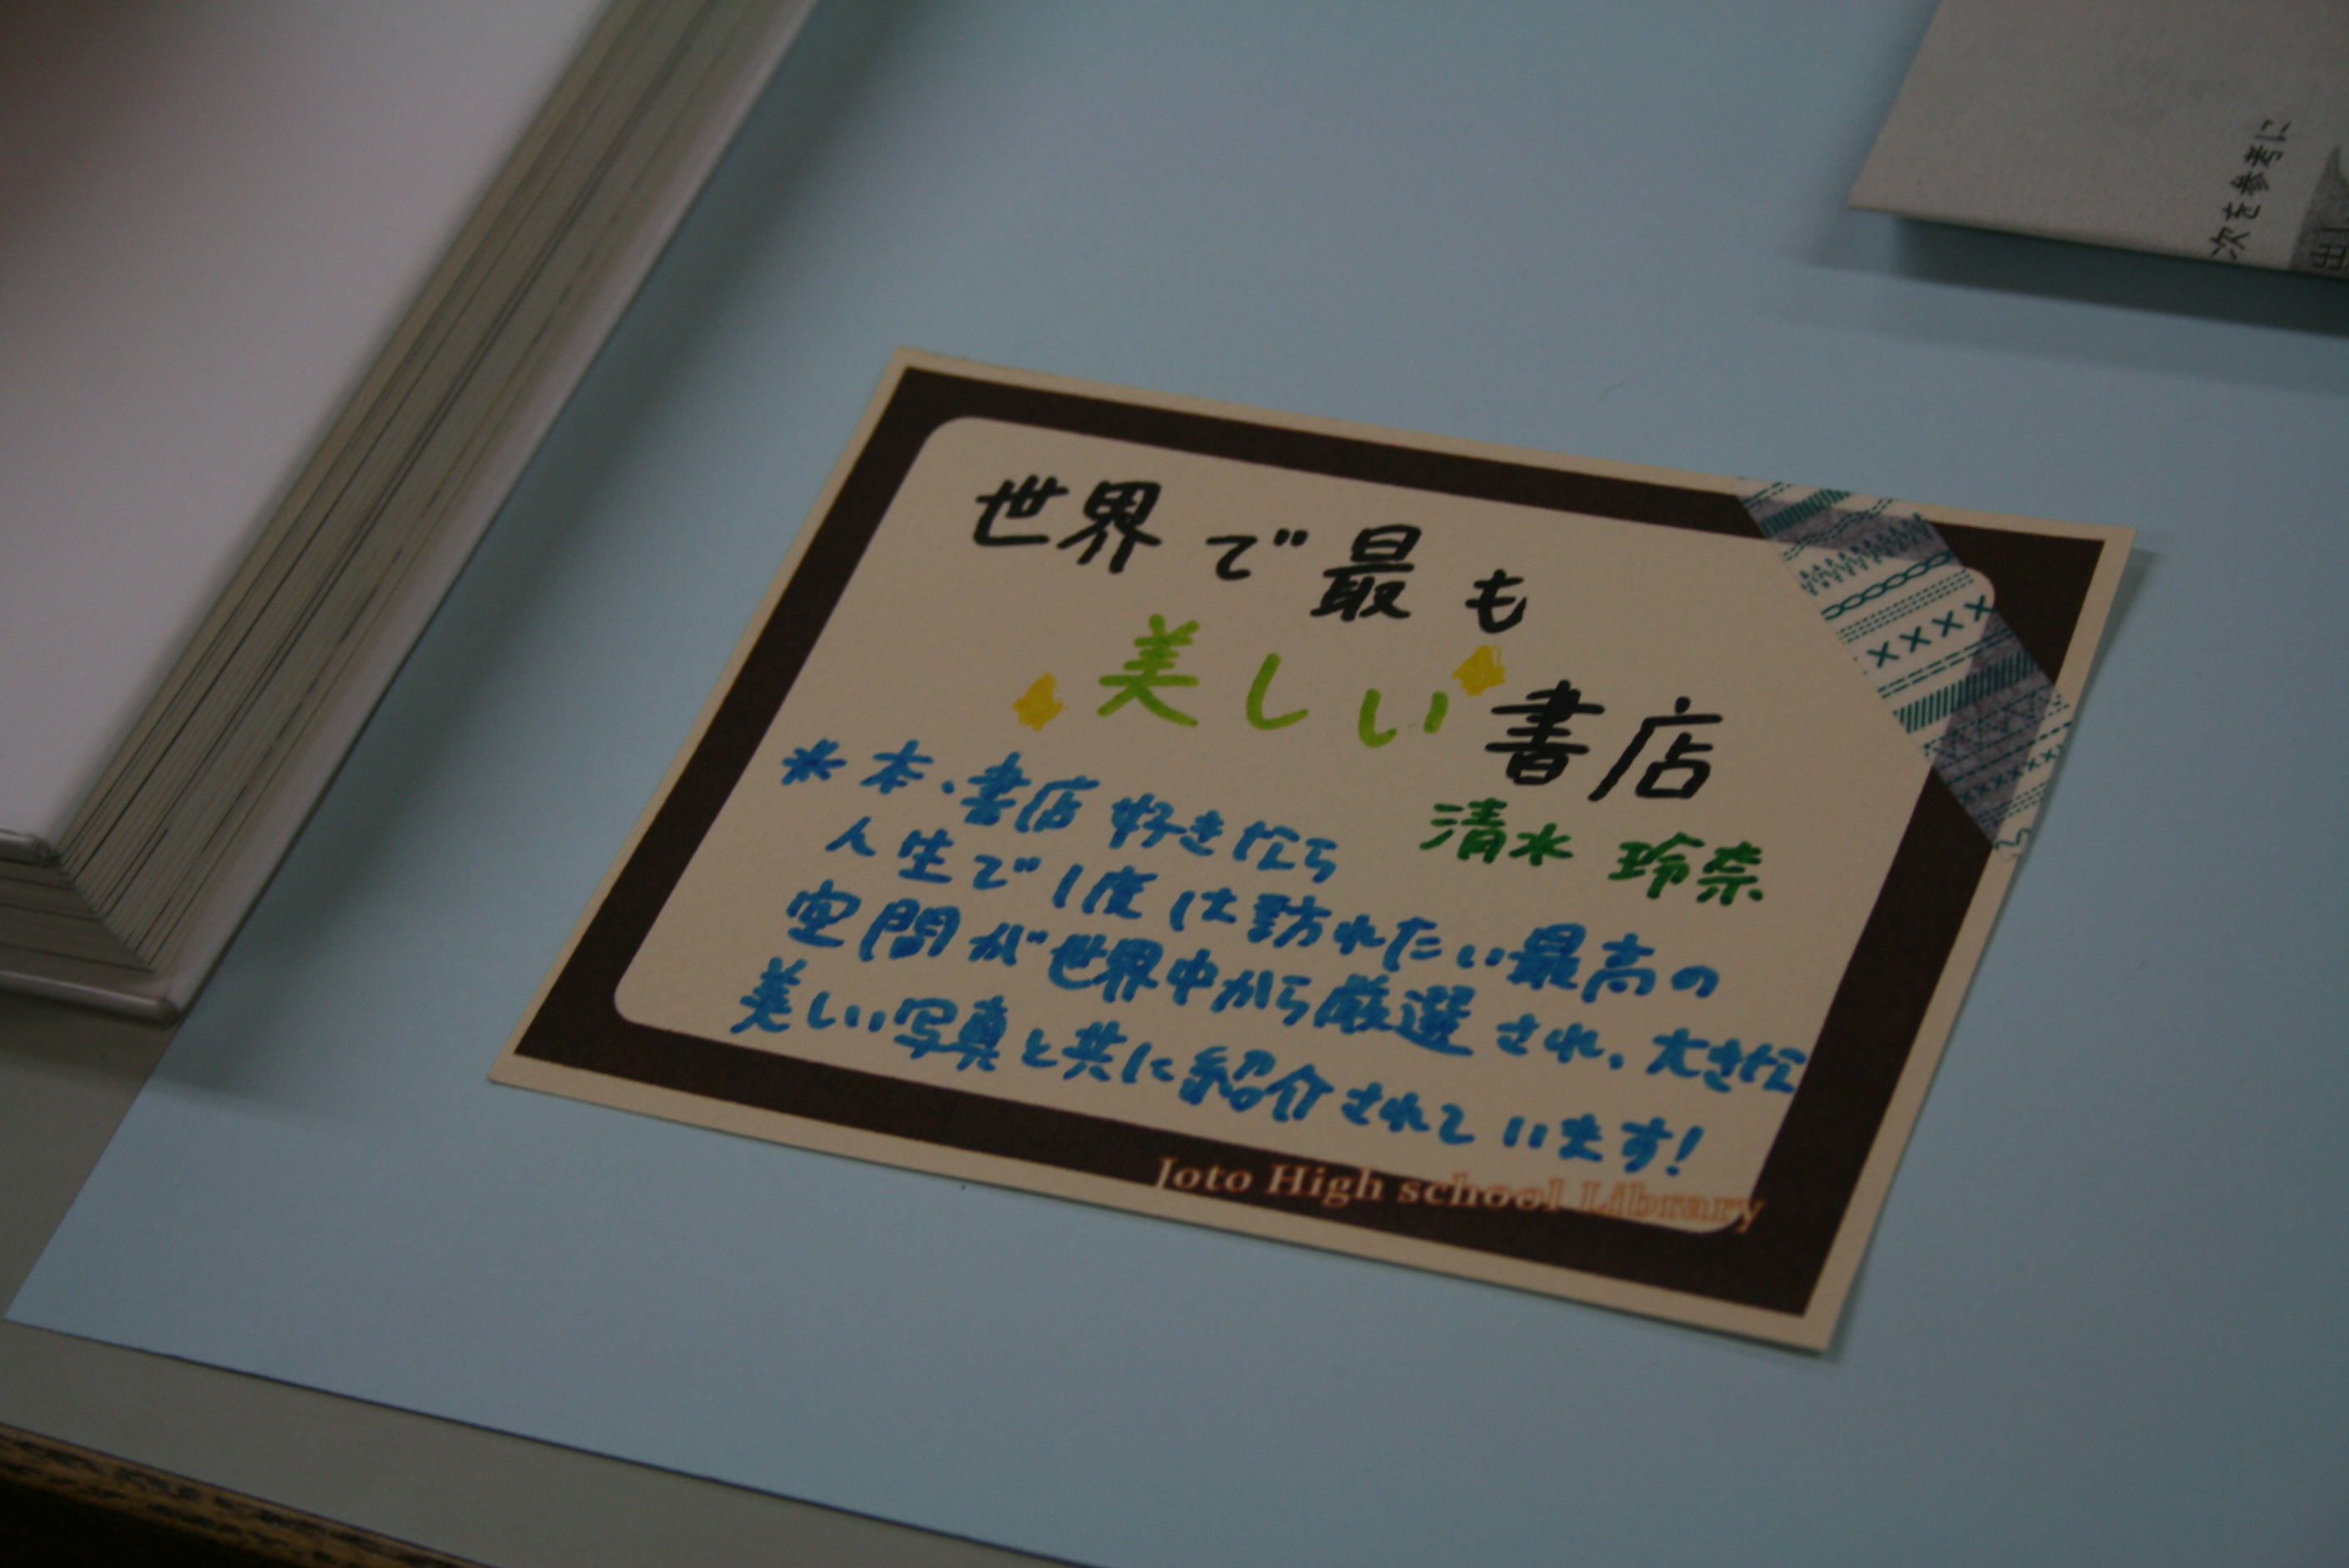 世界で最も
美しい書店
清水 玲奈
* 本・書店好きなら
人生で1度は訪れたい最高の
空間が世界中から厳選され、大きな
美しい写真と共に紹介されています!
Joto High school Library
次を参考に